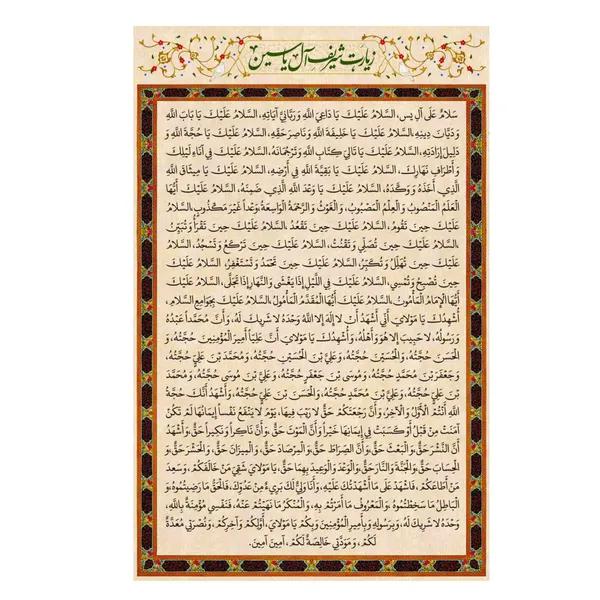 زیارت شریف آل یاسین
سَلامٌ عَلَى آلِ يس، السَّلامُ عَلَيْكَ يَا دَاعِيَ اللَّهِ وَرَبَّانِيَّ آيَاتِهِ، السَّلامُ عَلَيْكَ يَا بَابَ اللَّهِ
وَدَيَّانَ دِينِهِ، السَّلامُ عَلَيْكَ يَا خَلِيفَةَ اللَّهِ وَنَاصِرَ حَقِّهِ، السَّلامُ عَلَيْكَ يَا حُجَّةَ اللَّهِ وَ
دَلِيلَ إِرَادَتِهِ، السَّلامُ عَلَيْكَ يَا تَالِيَ كِتَابِ اللَّهِ وَتَرْجُمَانَهُ، السَّلامُ عَلَيْكَ فِي آنَاءِ لَيْلِكَ
وَأَطْرَافِ نَهَارِكَ، السَّلامُ عَلَيْكَ يَا بَقِيَّةَ اللَّهِ فِي أَرْضِهِ، السَّلامُ عَلَيْكَ يَا مِيثَاقَ اللَّهِ
الَّذِي أَخَذَهُ وَوَكَّدَهُ، السَّلامُ عَلَيْكَ يَا وَعْدَ اللَّهِ الَّذِي ضَمِنَهُ، السَّلامُ عَلَيْكَ أَيُّهَا
الْعَلَمُ الْمَنْصُوبُ وَالْعِلْمُ الْمَصْبُوبُ، وَالْغَوْثُ وَالرَّحْمَةُ الْوَاسِعَةُ وَعْداً غَيْرَ مَكْذُوبٍ، السَّلامُ
عَلَيْكَ حِينَ تَقُومُ، السَّلامُ عَلَيْكَ حِينَ تَقْعُدُ، السَّلامُ عَلَيْكَ حِينَ تَقْرَأُ وَتُبَيِّنُ
السَّلامُ عَلَيْكَ حِينَ تُصَلِّي وَتَقْنُتُ، السَّلامُ عَلَيْكَ حِينَ تَرْكَعُ وَتَسْجُدُ، السَّلامُ
عَلَيْكَ حِينَ تُهَلِّلُ وَتُكَبِّرُ، السَّلامُ عَلَيْكَ حِينَ تَحْمَدُ وَتَسْتَغْفِرُ، السَّلامُ عَلَيْكَ
حِينَ تُصْبِحُ وَتُمْسِي، السَّلامُ عَلَيْكَ فِي اللَّيْلِ إِذَا يَغْشَى وَالنَّهَارِ إِذَا تَجَلَّى، السَّلامُ عَلَيْكَ
أَيُّهَا الْإِمَامُ الْمَأْمُونُ، السَّلامُ عَلَيْكَ أَيُّهَا الْمُقَدَّمُ الْمَأْمُولُ، السَّلامُ عَلَيْكَ بِجَوَامِعِ السَّلامِ،
أُشْهِدُكَ يَا مَوْلايَ أَنِّي أَشْهَدُ أَنْ لا إِلَهَ إِلا اللَّهُ وَحْدَهُ لا شَرِيكَ لَهُ، وَأَنَّ مُحَمَّداً عَبْدُهُ
وَرَسُولُهُ، لا حَبِيبَ إِلا هُوَ وَأَهْلُهُ، وَأُشْهِدُكَ يَا مَوْلايَ أَنَّ عَلِيّاً أَمِيرَ الْمُؤْمِنِينَ حُجَّتُهُ، وَ
الْحَسَنَ حُجَّتُهُ، وَالْحُسَيْنَ حُجَّتُهُ، وَعَلِيَّ بْنَ الْحُسَيْنِ حُجَّتُهُ، وَمُحَمَّدَ بْنَ عَلِيٍّ حُجَّتُهُ،
وَجَعْفَرَ بْنَ مُحَمَّدٍ حُجَّتُهُ، وَمُوسَى بْنَ جَعْفَرٍ حُجَّتُهُ، وَعَلِيَّ بْنَ مُوسَى حُجَّتُهُ، وَمُحَمَّدَ بْنَ
عَلِيٍّ حُجَّتُهُ، وَعَلِيَّ بْنَ مُحَمَّدٍ حُجَّتُهُ، وَالْحَسَنَ بْنَ عَلِيٍّ حُجَّتُهُ، وَأَشْهَدُ أَنَّكَ حُجَّةُ
اللَّهِ أَنْتُمُ الْأَوَّلُ وَالْآخِرُ، وَأَنَّ رَجْعَتَكُمْ حَقٌّ لا رَيْبَ فِيهَا، يَوْمَ لا يَنْفَعُ نَفْساً إِيمَانُهَا لَمْ تَكُنْ
آمَنَتْ مِنْ قَبْلُ أَوْ كَسَبَتْ فِي إِيمَانِهَا خَيْراً وَأَنَّ الْمَوْتَ حَقٌّ، وَأَنَّ نَاكِراً وَنَكِيراً حَقٌّ، وَأَشْهَدُ
أَنَّ النَّشْرَ حَقٌّ، وَالْبَعْثَ حَقٌّ، وَأَنَّ الصِّرَاطَ حَقٌّ، وَالْمِرْصَادَ حَقٌّ، وَالْمِيزَانَ حَقٌّ، وَالْحَشْرَ حَقٌّ، وَ
الْحِسَابَ حَقٌّ، وَالْجَنَّةَ وَالنَّارَ حَقٌّ، وَالْوَعْدَ وَالْوَعِيدَ بِهِمَا حَقٌّ، يَا مَوْلايَ شَقِيَ مَنْ خَالَفَكُمْ، وَسَعِدَ
مَنْ أَطَاعَكُمْ، فَاشْهَدْ عَلَى مَا أَشْهَدْتُكَ عَلَيْهِ، وَأَنَا وَلِيٌّ لَكَ بَرِيءٌ مِنْ عَدُوِّكَ، فَالْحَقُّ مَا رَضِيتُمُوهُ، وَ
الْبَاطِلُ مَا سَخِطْتُمُوهُ، وَالْمَعْرُوفُ مَا أَمَرْتُمْ بِهِ، وَالْمُنْكَرُ مَا نَهَيْتُمْ عَنْهُ، فَنَفْسِي مُؤْمِنَةٌ بِاللَّهِ،
وَحْدَهُ لا شَرِيكَ لَهُ، وَبِرَسُولِهِ وَبِأَمِيرِ الْمُؤْمِنِينَ وَبِكُمْ يَا مَوْلايَ، أَوَّلِكُمْ وَآخِرِكُمْ، وَنُصْرَتِي مُعَدَّةٌ
لَكُمْ، وَمَوَدَّتِي خَالِصَةٌ لَكُمْ، آمِينَ آمِينَ.